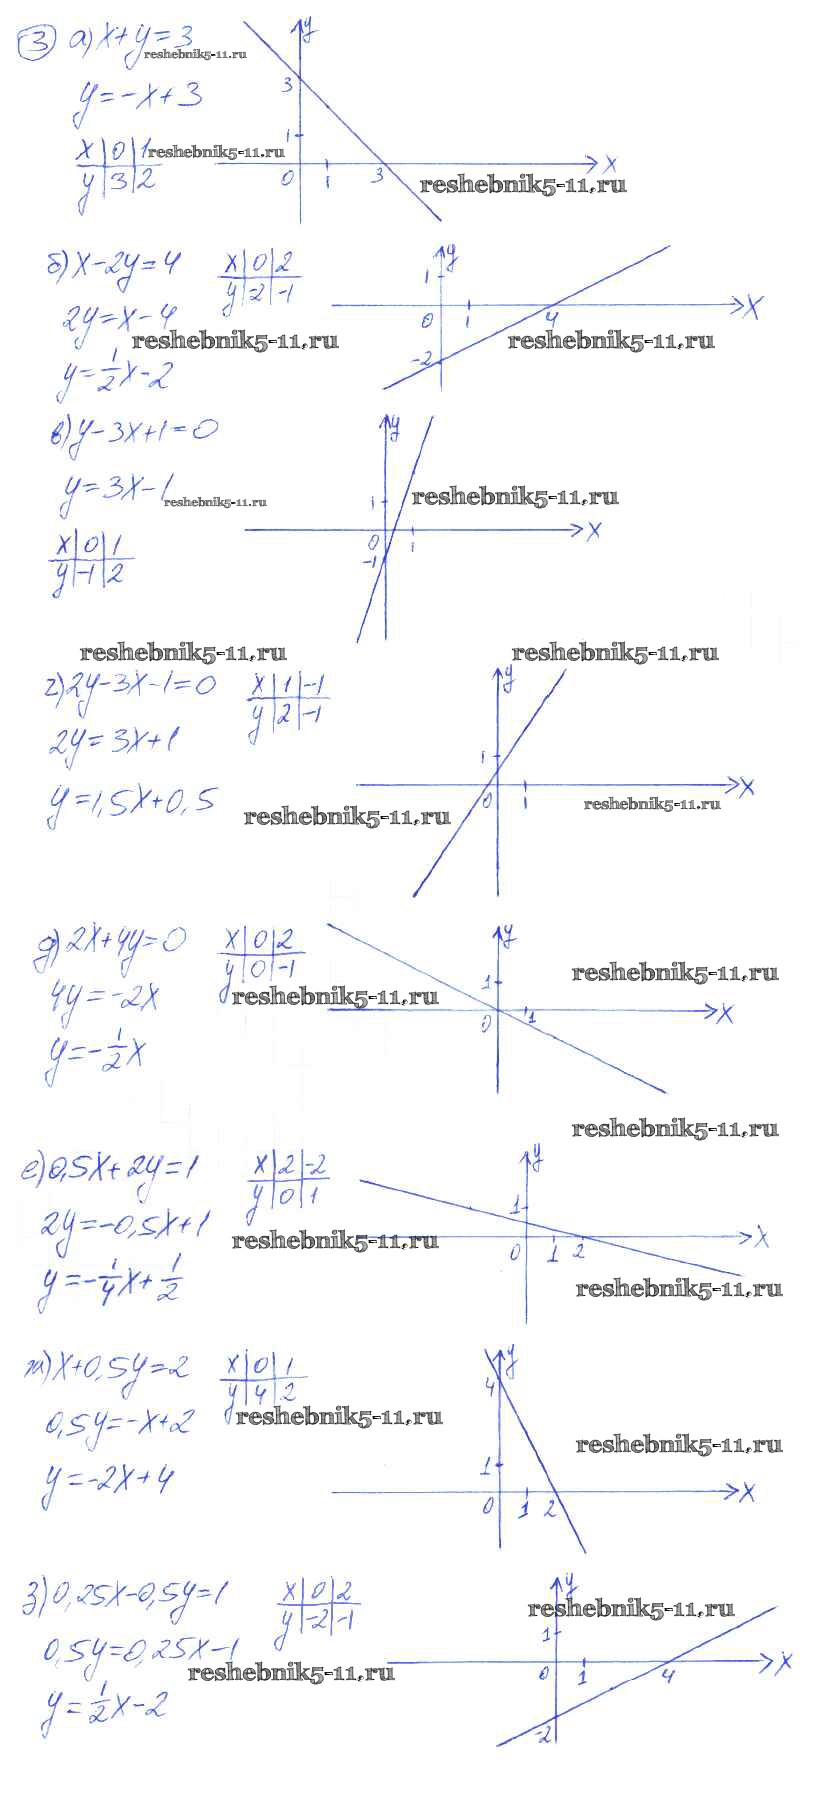 3 а) x+y=3
reshebnik5-11.ru
y=-x+3
x|0|1
y|3|2
reshebnik5-11.ru
y
3
1
0 1 3 x
reshebnik5-11.ru
б) x-2y=4
x|0|2
y|-2|-1
2y=x-4
reshebnik5-11.ru
y=1/2x-2
y
1
0 1 4 x
-2
reshebnik5-11.ru
в) y-3x+1=0
y=3x-1
reshebnik5-11.ru
x|0|1
y|-1|2
y
reshebnik5-11.ru
1
0 1 x
-1
reshebnik5-11.ru
reshebnik5-11.ru
г) 2y-3x-1=0
x|1|-1
y|2|-1
2y=3x+1
y=1,5x+0,5
reshebnik5-11.ru
y
1
0 1 x
reshebnik5-11.ru
д) 2x+4y=0
x|0|2
y|0|-1
4y=-2x
reshebnik5-11.ru
y=-1/2x
y
reshebnik5-11.ru
1
0 1 x
reshebnik5-11.ru
е) 0,5x+2y=1
x|2|-2
y|0|1
2y=-0,5x+1
reshebnik5-11.ru
y=-1/4x+1/2
y
1
0 1 2 x
reshebnik5-11.ru
ж) x+0,5y=2
x|0|1
y|4|2
0,5y=-x+2
reshebnik5-11.ru
y=-2x+4
y
4
reshebnik5-11.ru
1
0 1 2 x
з) 0,25x-0,5y=1
x|0|2
y|-2|-1
0,5y=0,25x-1
reshebnik5-11.ru
y=1/2x-2
y
reshebnik5-11.ru
1
0 1 4 x
-2